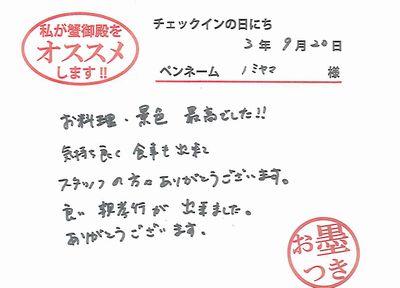 私が蟹御殿を
オススメ
します!!
チェックインの日にち
3年9月20日
ペンネーム ノミヤマ 様
お料理・景色 最高でした!!
気持ち良く 食事も出来て
スタッフの方々ありがとうございます。
良い 親孝行が 出来ました。
ありがとうございます。
お墨
つき